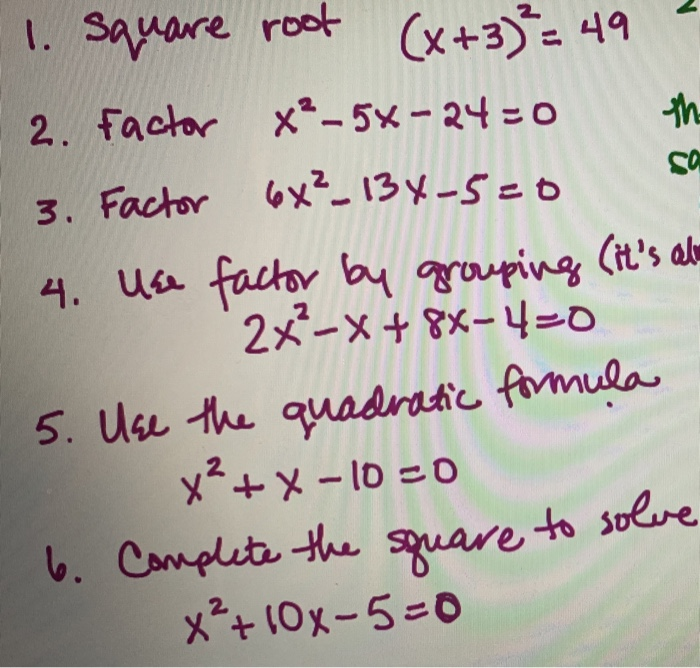 1. Square root (x+3)²= 49
2. Factor x²-5x-24=0
th
so
3. Factor 6x²-13x-5=0
4. Use factor by grouping (it's
2x²-x+8x-4=0
5. Use the quadratic formula
x²+x-10=0
6. Complete the square to solve
x²+10x-5=0